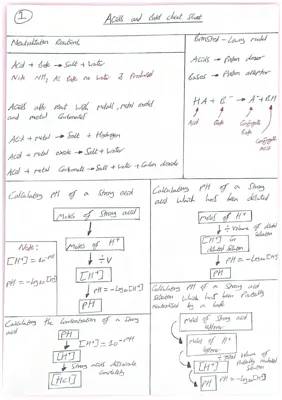 1
Acids and Bases cheat sheet
Neutralisation Reactions
Acid + Base → Salt + Water
Note NH3 as Base no water is Produced
Acids also react with metals, metal oxides
and metal Carbonates
Acid + metal → Salt + Hydrogen
Acid + metal oxide → Salt + Water
Acid + metal Carbonate → Salt + Water + Carbon dioxide
Brønsted - Lowry model
Acids → Proton donor
Bases → Proton acceptor
HA + B⁻ → A⁻ + BH
Acid Base Conjugate Base Conjugate acid
Calculating PH of a Strong acid
Moles of Strong acid
Moles of H⁺
÷V
[H⁺]
PH = -Log10[H]
PH
Note:
[H⁺] = 10^-PH
PH = -Log10[H]
Calculating PH of a Strong
acid which has been diluted
moles of H⁺
÷ Volume of diluted
solution
[H⁺] in
diluted solution
PH = -Log10[H]
PH
Calculating the Concentration of a Strong
acid
PH
[H⁺] = 10^-PH
[H⁺]
Strong acids dissociate
completely
[HCl]
Calculating PH of a Strong acid
Solution which has been Partially
neutralised by a base
moles of Strong acid
leftover
moles of H⁺
leftover
÷ total volume of
Partially neutralised
solution
[H⁺]
PH = -Log10[H]
PH